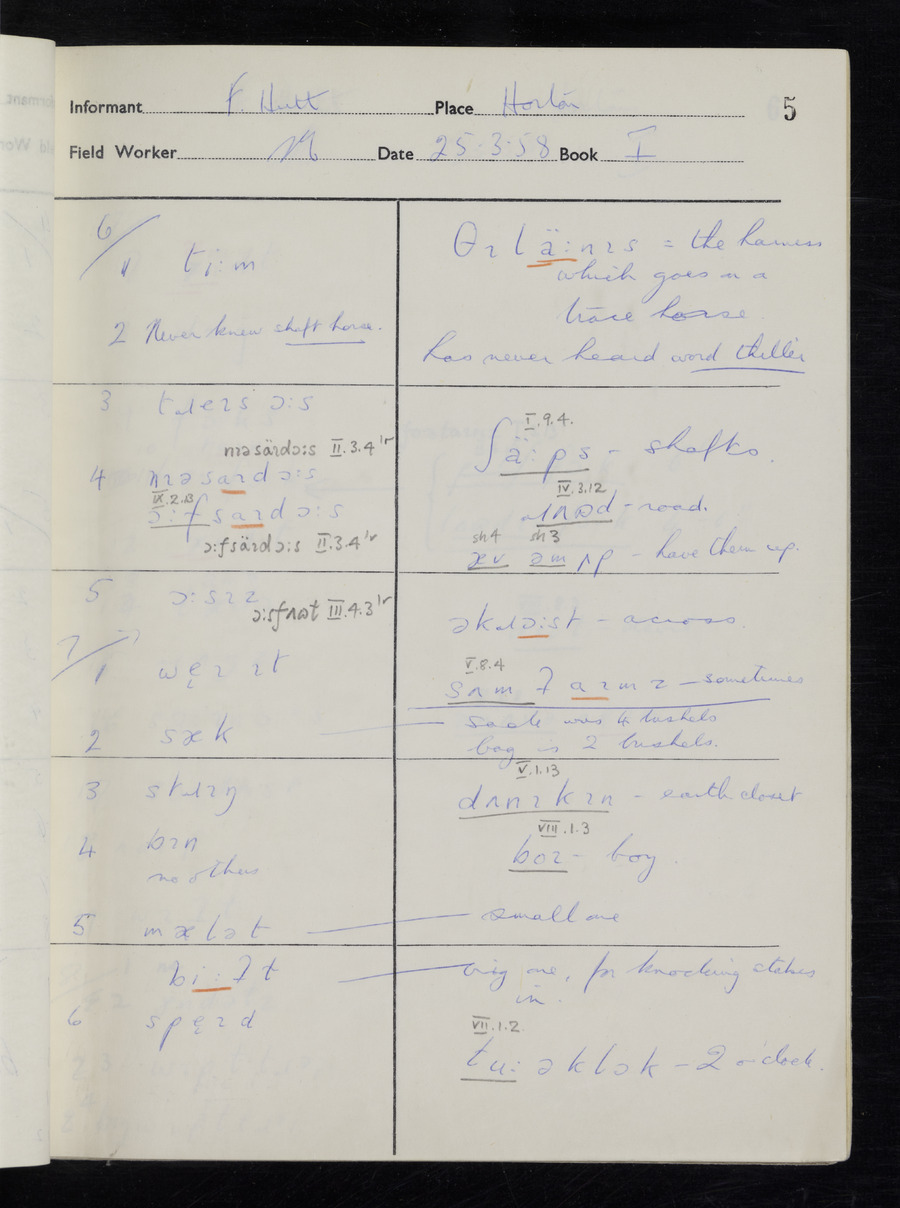 Informant F. Hutt Place Horton 5
Field Worker Date 25.3.58 Book I
6/
1 ti:m
2 Never knew shaft horse.
3 tɹeɪsɔ:s
nɪəsäɪdɔ:s II.3.4
4 nɪəsaɪdɔ:s
IX.2.13
ɔ:fsaɪdɔ:s
ɔ:fsäɪdɔ:s II.3.4
5 ɔ:sɪz
ɔ:sfʌʊt III.4.3
7/
1 węɪ ɪt
2 sæk
3 stɹɪŋ
4 bɪn
no others
5 mælət
bi:ʔt
6 spęɪd
θɪlä:nɪs = the harness
which goes on a
trace horse
has never heard word thiller
I.9.4.
ʃä:ps - shafts.
IV.3.12
ɹʌʊd - road.
sh4 sh3
æv əm ʌp - have them up.
əkɹɔ:st - across.
V.8.4
sʌmʔaɪmz - sometimes
sack was 4 bushels
bag is 2 bushels.
V.1.13
dʌnɪkɪn - earth closet
VIII.1.3
bɔɪ - boy.
small one
big one, for knocking stakes
in.
VII.1.2.
tu: əklɔk - 2 o'clock.